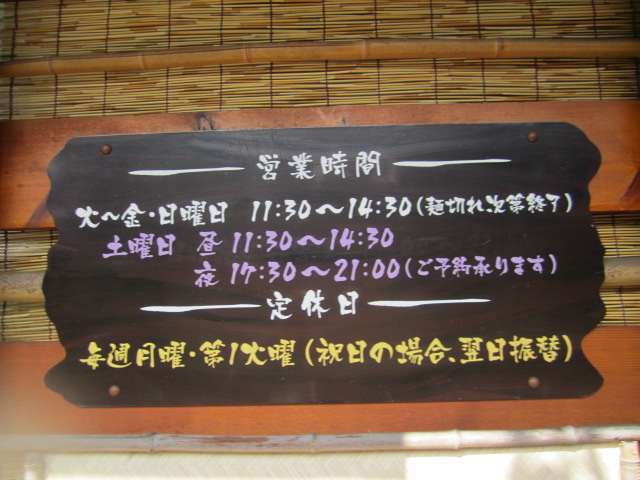 営業時間
火～金・日曜日 11:30～14:30(麺切れ次第終了)
土曜日 昼 11:30～14:30
夜 17:30～21:00(ご予約承ります)
定休日
毎週月曜・第1火曜(祝日の場合、翌日振替)